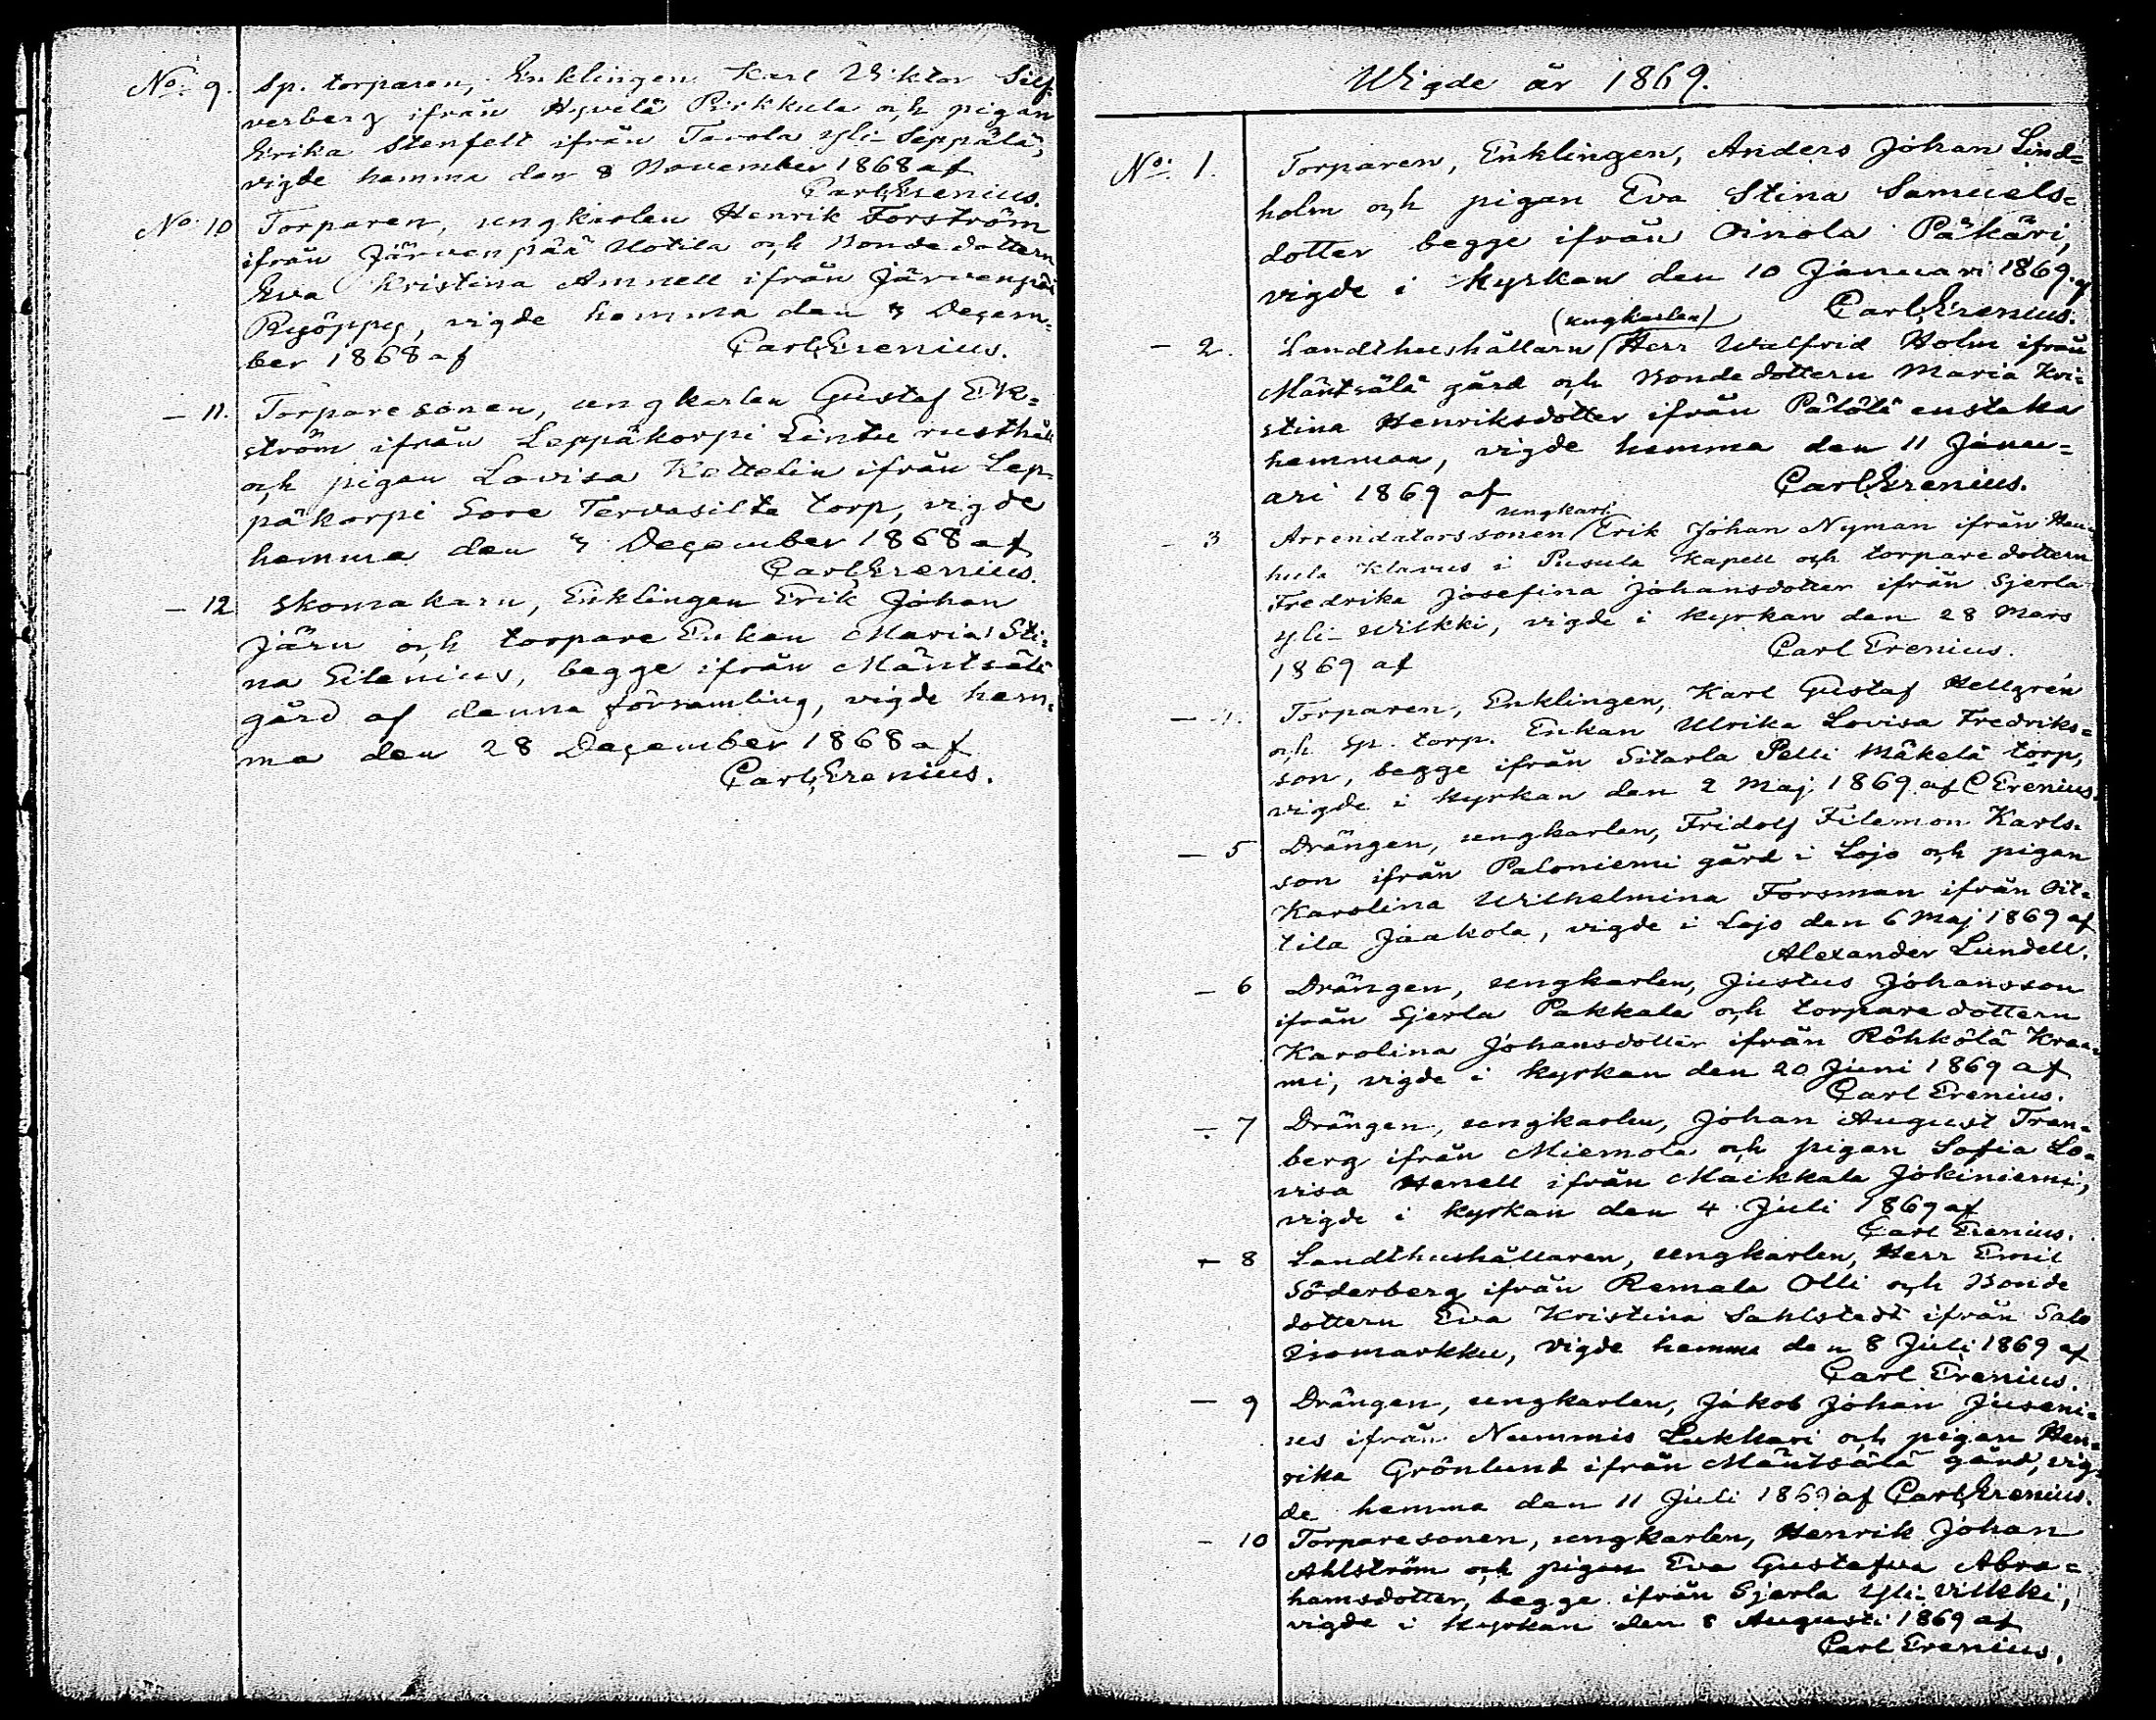 No. 9. Sp. torparen, Enklingen Karl Viktor Silf-
verberg ifrån Hyvelä Pirkkula och pigan
Erika Stenfelt ifrån Tavola Yli-Seppälä,
vigde hemma den 8 November 1868 af
Carl Erenius.
No. 10 Torparen, ungkarlen Henrik Forström
ifrån Järvenpää Uotila och Bondedottern
Eva Kristina Amnell ifrån Järvenpää
Ryöppy, vigde hemma den 3 Decem-
ber 1868 af Carl Erenius.
— 11. Torparesonen, ungkarlen Gustaf Ek=
ström ifrån Leppäkorpi Lintu rusthåll
och pigan Lovisa Kottelin ifrån Lep-
päkorpi Sore Tervasilta torp, vigde
hemma den 3 December 1868 af
Carl Erenius.
— 12 Skomakarn, Enklingen Erik Johan
Järn och torpare Enkan Maria Sti=
na Silenius, begge ifrån Mäntsälä
gård af denna församling, vigde hem=
ma den 28 December 1868 af
Carl Erenius.
Wigde år 1869.
No. 1. Torparen, Enklingen, Anders Johan Lind=
holm och pigan Eva Stina Samuels=
dotter begge ifrån Oinola Päkäri,
vigde i kyrkan den 10 Januari 1869 af
Carl Erenius.
(ungkarlen)
— 2. Landthushållarn Herr Walfrid Holm ifrån
Mäntsälä gård och Bondedottern Maria Kri=
stina Henriksdotter ifrån Pälölä enstaka
hemman, vigde hemma den 11 Janu=
ari 1869 af Carl Erenius.
ungkarl.
— 3 Arrendatorssonen Erik Johan Nyman ifrån Hau-
hula Klavus i Pusula Kapell och torparedottern
Fredrika Josefina Johansdotter ifrån Sjerla
Yli-Wilkki, vigde i kyrkan den 28 Mars
1869 af Carl Erenius.
— 4. Torparen, Enklingen, Karl Gustaf Hellgrén
och Sp. torp. Enkan Ulrika Lovisa Fredriks=
son, begge ifrån Sitarla Pelli Mäkelä torp,
vigde i kyrkan den 2 Maj 1869 af C Erenius.
— 5 Drängen, ungkarlen, Fridolf Filemon Karls=
son ifrån Paloniemi gård i Lojo och pigan
Karolina Wilhelmina Forsman ifrån Oit=
tila Jaakola, vigde i Lojo den 6 Maj 1869 af
Alexander Lundell.
— 6 Drängen, ungkarlen, Justus Johansson
ifrån Sjerla Pakkala och torparedottern
Karolina Johansdotter ifrån Röhkölä Kraa=
mi, vigde i kyrkan den 20 Juni 1869 af
Carl Erenius.
— 7 Drängen, ungkarlen, Johan August Tran=
berg ifrån Miemola och pigan Sofia Lo=
visa Henell ifrån Maikkala Jokiniemi,
vigde i kyrkan den 4 Juli 1869 af
Carl Erenius.
— 8 Landthushållaren, ungkarlen, Herr Emil
Söderberg ifrån Remala Olli och Bonde
dottern Eva Kristina Sahlstedt ifrån Salo
Isomarkku, vigde hemma den 8 Juli 1869 af
Carl Erenius.
— 9 Drängen, ungkarlen, Jakob Johan Juseni=
us ifrån Nummis Lukkari och pigan Hen=
rika Grönlund ifrån Mäntsälä gård, vig=
de hemma den 11 Juli 1869 af Carl Erenius.
— 10 Torparesonen, ungkarlen, Henrik Johan
Ahlström och pigan Eva Gustafva Abra=
hamsdotter, begge ifrån Sjerla Yli-Vilkki,
vigde i kyrkan den 8 Augusti 1869 af
Carl Erenius.